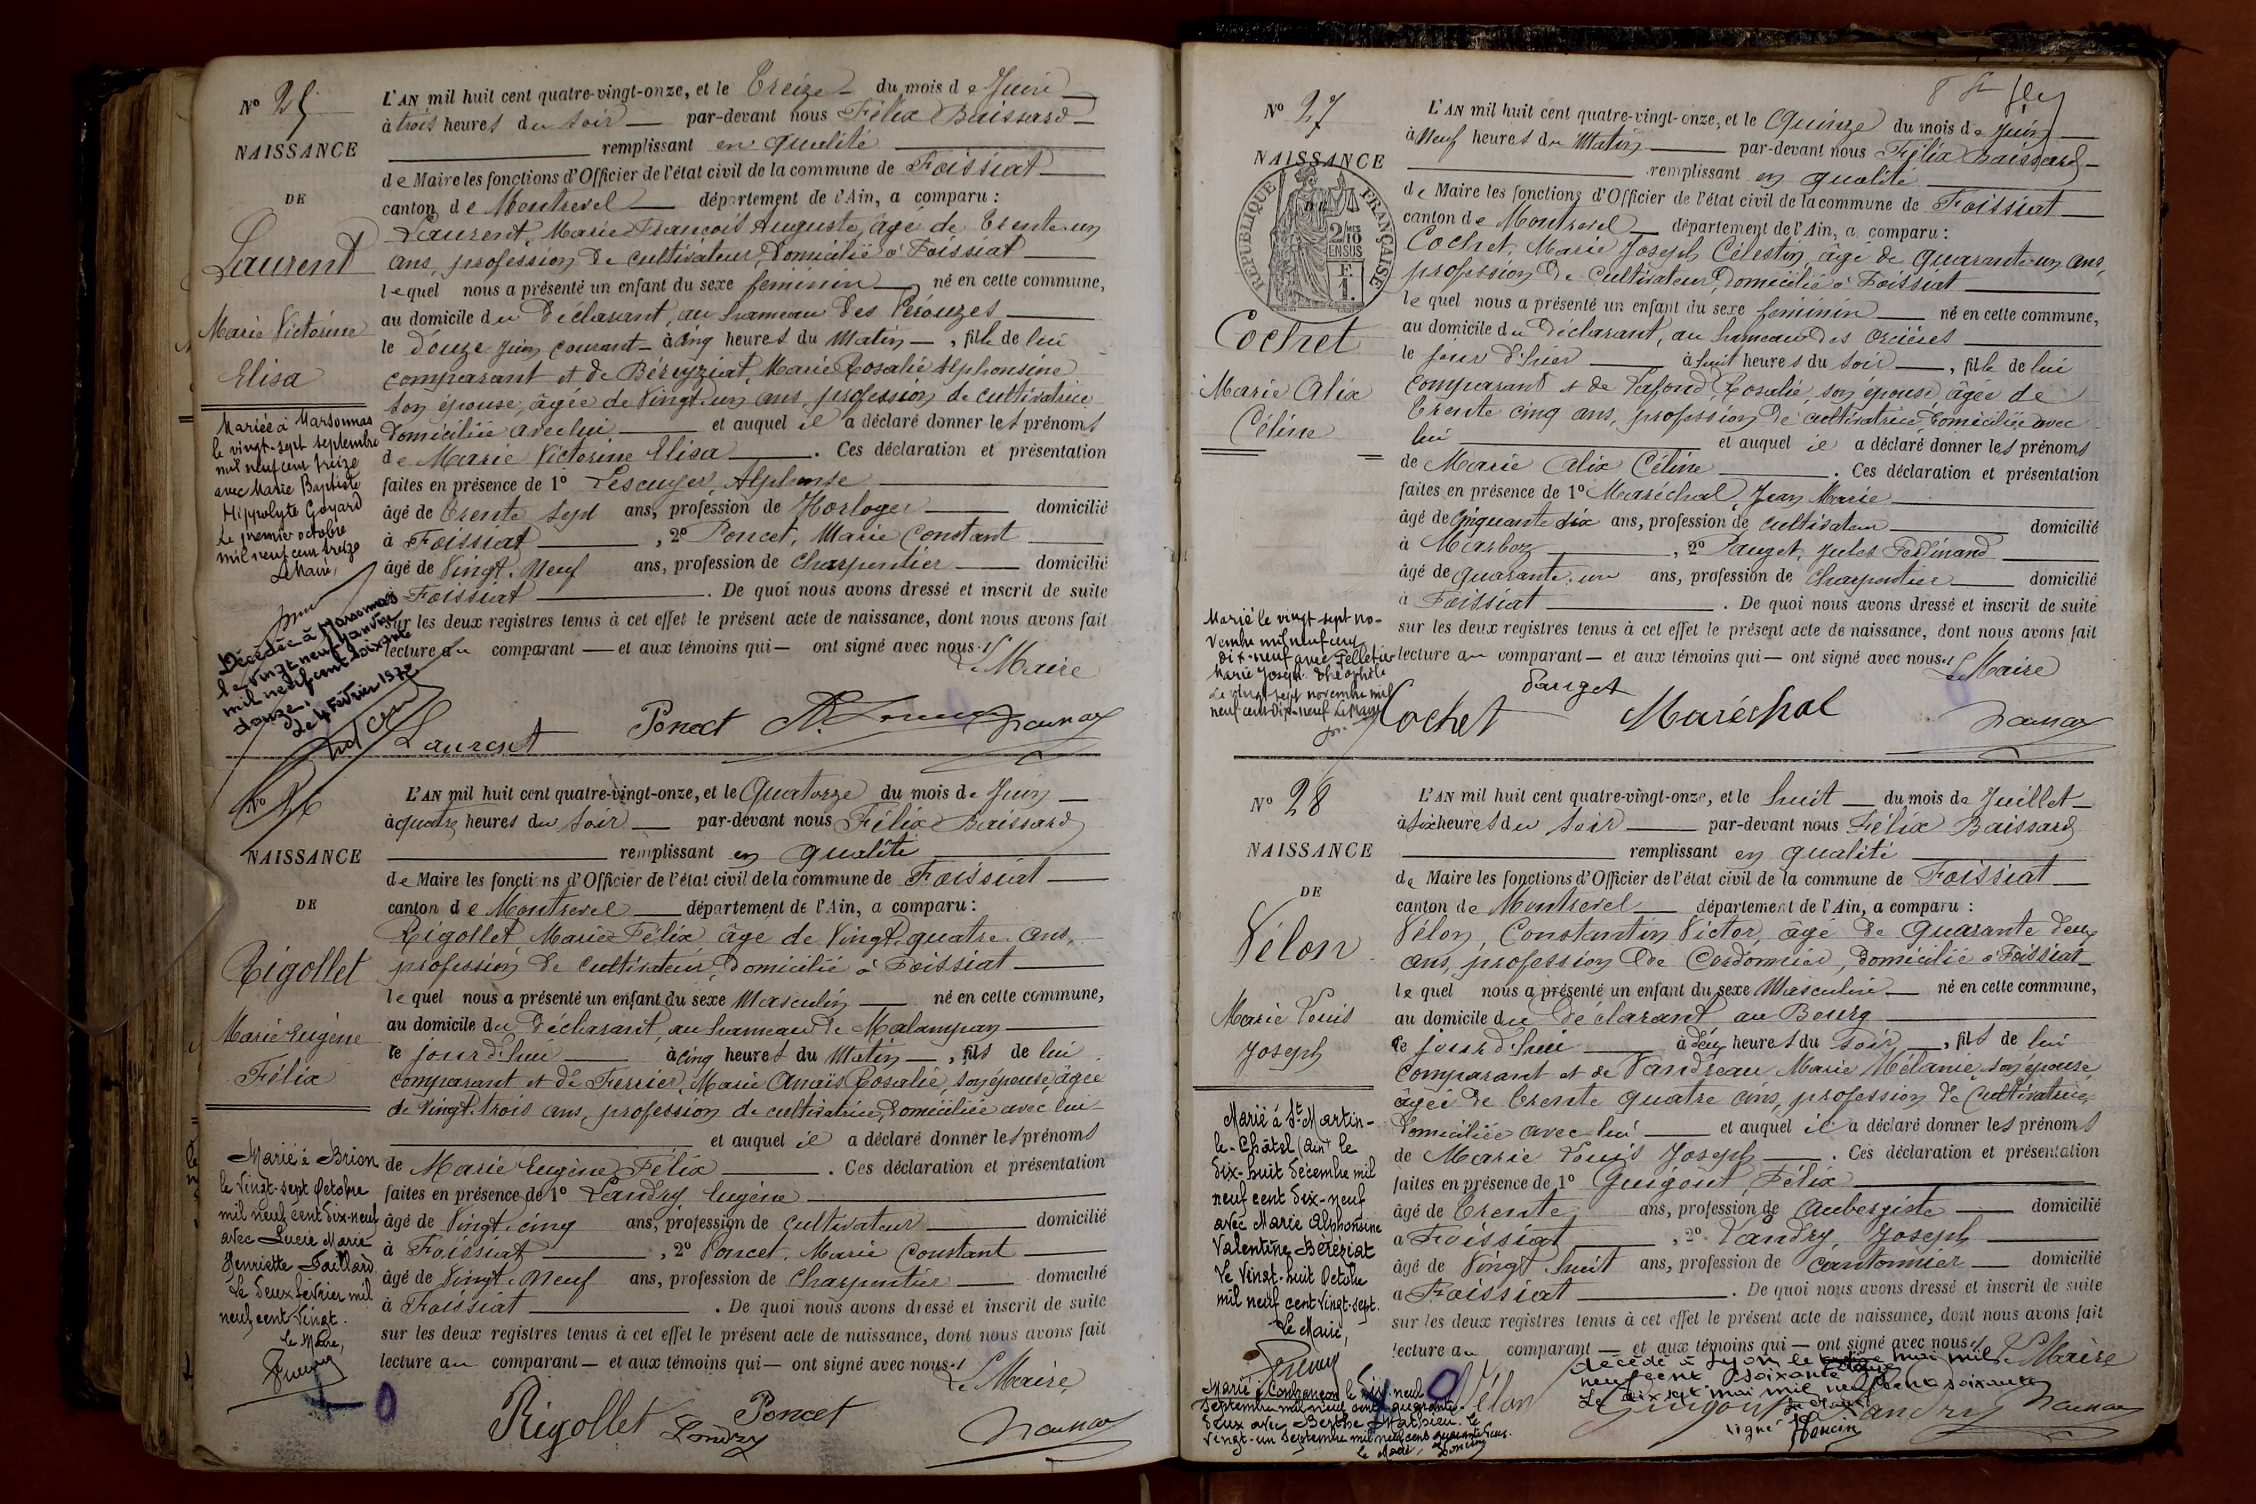 N° 25
NAISSANCE
DE
Laurent
Marie Victorine
Elisa
Mariée à Marsonnas
le vingt-sept septembre
mil neuf cent treize
avec Marie Baptiste
Hippolyte Goyard
Le premier octobre
mil neuf cent treize
Le Maire,
Décédée à Marsonnas
le vingt neuf Janvier
mil neuf cent soixante
douze.
Le 4 Février 1972
L'AN mil huit cent quatre-vingt-onze, et le Treize du mois de Juin
à trois heures du soir par-devant nous Félix Baissard
remplissant en qualité
de Maire les fonctions d'Officier de l'état civil de la commune de Foissiat
canton de Montrevel département de l'Ain, a comparu :
Laurent, Marie François Auguste, âgé de trente un
ans, profession de cultivateur, domicilié à Foissiat
lequel nous a présenté un enfant du sexe féminin né en cette commune,
au domicile du déclarant, au hameau des Pérouzes
le douze Juin courant à cinq heures du matin, fille de lui
comparant et de Béreyziat, Marie Rosalie Alphonsine
son épouse, âgée de vingt-un ans, profession de cultivatrice
domiciliée avec lui et auquel il a déclaré donner les prénoms
de Marie Victorine Elisa. Ces déclaration et présentation
faites en présence de 1° Lescuyer, Alphonse
âgé de trente sept ans, profession de Horloger domicilié
à Foissiat, 2° Poncet, Marie Constant
âgé de vingt-neuf ans, profession de charpentier domicilié
à Foissiat. De quoi nous avons dressé et inscrit de suite
sur les deux registres tenus à cet effet le présent acte de naissance, dont nous avons fait
lecture au comparant et aux témoins qui ont signé avec nous.
Le Maire
Laurent Poncet
N° 26
NAISSANCE
DE
Rigollet
Marie Eugène
Félix
Marié à Brion
le vingt-sept Octobre
mil neuf cent dix-neuf
avec Lucie Marie
Henriette Paillard.
Le deux février mil
neuf cent vingt.
Le Maire,
L'AN mil huit cent quatre-vingt-onze, et le Quatorze du mois de Juin
à quatre heures du soir par-devant nous Félix Baissard
remplissant en qualité
de Maire les fonctions d'Officier de l'état civil de la commune de Foissiat
canton de Montrevel département de l'Ain, a comparu :
Rigollet, Marie Félix, âgé de vingt-quatre ans,
profession de cultivateur, domicilié à Foissiat
lequel nous a présenté un enfant du sexe masculin né en cette commune,
au domicile du déclarant, au hameau de Malampan
le jour d'hui à cinq heures du matin, fils de lui
comparant et de Ferrier, Marie Anaïs Rosalie, son épouse, âgée
de vingt-trois ans, profession de cultivatrice, domiciliée avec lui
et auquel il a déclaré donner les prénoms
de Marie Eugène Félix. Ces déclaration et présentation
faites en présence de 1° Landry Eugène
âgé de vingt-cinq ans, profession de cultivateur domicilié
à Foissiat, 2° Poncet, Marie Constant
âgé de vingt-neuf ans, profession de charpentier domicilié
à Foissiat. De quoi nous avons dressé et inscrit de suite
sur les deux registres tenus à cet effet le présent acte de naissance, dont nous avons fait
lecture au comparant et aux témoins qui ont signé avec nous.
Le Maire,
Rigollet Landry Poncet
N° 27
NAISSANCE
DE
RÉPUBLIQUE FRANÇAISE
2/10
EN SUS
Cochet
Marie Alix
Céline
Marié le vingt-sept no-
vembre mil neuf cent
dix-neuf avec Pelletier
Marie Joseph Théophile
Le vingt-sept novembre mil
neuf cent dix-neuf Le Maire
L'AN mil huit cent quatre-vingt-onze, et le Quinze du mois de Juin
à neuf heures du matin par-devant nous Félix Baissard
remplissant en qualité
de Maire les fonctions d'Officier de l'état civil de la commune de Foissiat
canton de Montrevel département de l'Ain, a comparu :
Cochet, Marie Joseph Célestin, âgé de quarante-un ans,
profession de cultivateur, domicilié à Foissiat
lequel nous a présenté un enfant du sexe féminin né en cette commune,
au domicile du déclarant, au hameau des Orcières
le jour d'hier à huit heures du soir, fille de lui
comparant et de Lafond, Rosalie, son épouse, âgée de
trente cinq ans, profession de cultivatrice, domiciliée avec
lui et auquel il a déclaré donner les prénoms
de Marie Alix Céline. Ces déclaration et présentation
faites en présence de 1° Maréchal, Jean Marie
âgé de cinquante six ans, profession de cultivateur domicilié
à Marboz, 2° Pauget, Jules Ferdinand
âgé de quarante-un ans, profession de charpentier domicilié
à Foissiat. De quoi nous avons dressé et inscrit de suite
sur les deux registres tenus à cet effet le présent acte de naissance, dont nous avons fait
lecture au comparant et aux témoins qui ont signé avec nous.
Le Maire
Cochet Pauget Maréchal
N° 28
NAISSANCE
DE
Vélon
Marie Louis
Joseph
Marié à St-Martin-
le-Châtel (Ain) le
dix-huit décembre mil
neuf cent dix-neuf
avec Marie Alphonsine
Valentine Béréziat
Le vingt-huit Octobre
mil neuf cent vingt-sept.
Le Maire,
Marié à Confrançon le dix-neuf
septembre mil neuf cent quarante
deux avec Berthe Mathieu. Le
vingt-un septembre mil neuf cent quarante deux.
Le Maire,
L'AN mil huit cent quatre-vingt-onze, et le huit du mois de Juillet
à six heures du soir par-devant nous Félix Baissard
remplissant en qualité
de Maire les fonctions d'Officier de l'état civil de la commune de Foissiat
canton de Montrevel département de l'Ain, a comparu :
Vélon, Constantin Victor, âgé de quarante deux
ans, profession de Cordonnier, domicilié à Foissiat
lequel nous a présenté un enfant du sexe masculin né en cette commune,
au domicile du déclarant au Bourg
le jour d'hui à deux heures du soir, fils de lui
comparant et de Vandreau Marie Mélanie, son épouse
âgée de trente quatre ans, profession de cultivatrice,
domiciliée avec lui et auquel il a déclaré donner les prénoms
de Marie Louis Joseph. Ces déclaration et présentation
faites en présence de 1° Guigout, Félix
âgé de trente ans, profession de Aubergiste domicilié
à Foissiat, 2° Landry, Joseph
âgé de vingt huit ans, profession de cantonnier domicilié
à Foissiat. De quoi nous avons dressé et inscrit de suite
sur les deux registres tenus à cet effet le présent acte de naissance, dont nous avons fait
lecture au comparant et aux témoins qui ont signé avec nous.
Le Maire
décédé à Lyon le mai mil
neuf cent soixante
Le dix sept mai mil neuf cent soixante
signé
Vélon Guigout Landry